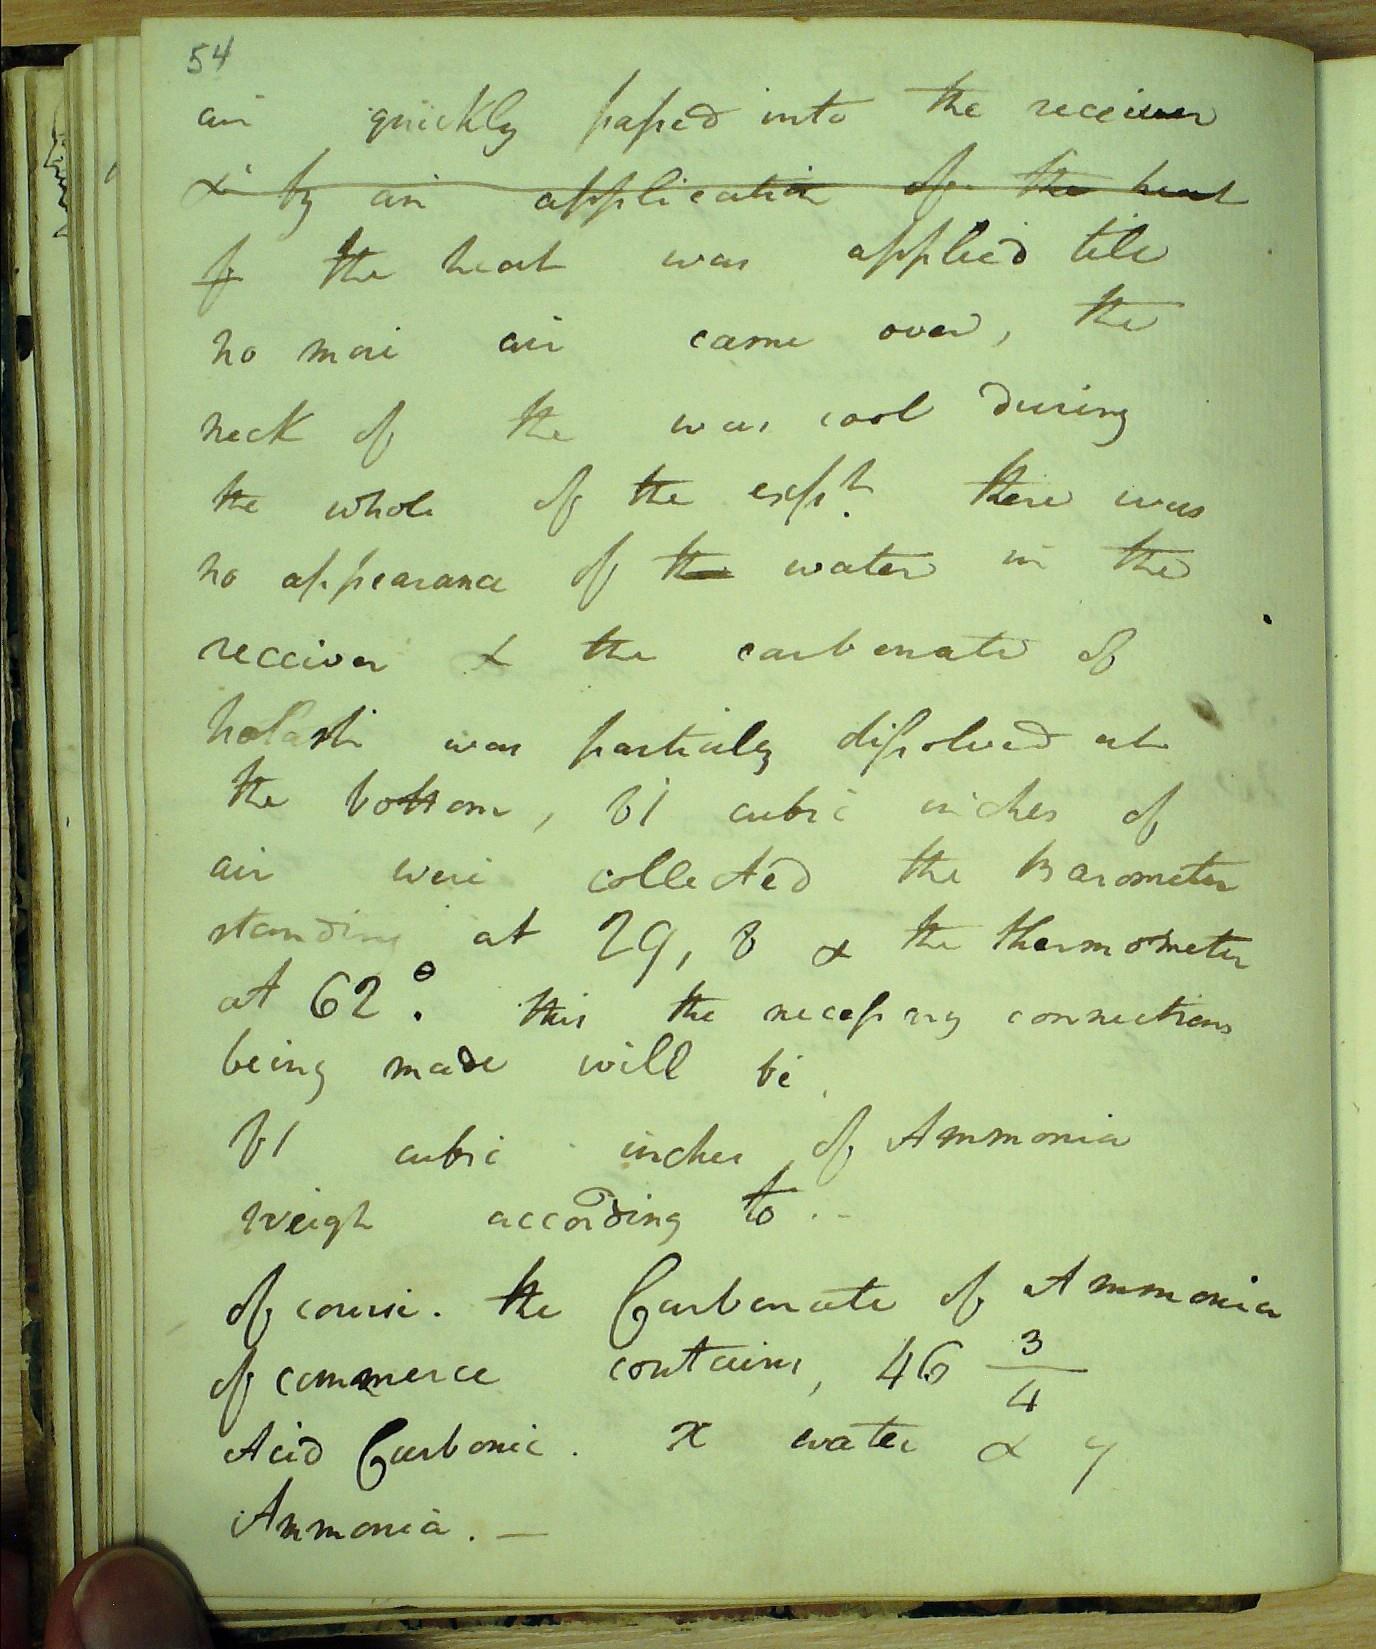 54
air quickly passed into the receiver
& by an application of the heat
of the heat was applied till
no more air came over, the
neck of the was cool during
the whole of the expt. there was
no appearance of the water in the
receiver & the carbonate of
potash was partially dissolved at
the bottom, 81 cubic inches of
air were collected the Barometer
standing at 29, 8 & the thermometer
at 62°. this the necessary connections
being made will be
81 cubic inches of Ammonia
weigh according to . –
of course. the Carbonate of Ammonia
of commerce contains, 46 3/4
Acid Carbonic. x water & y
Ammonia. —